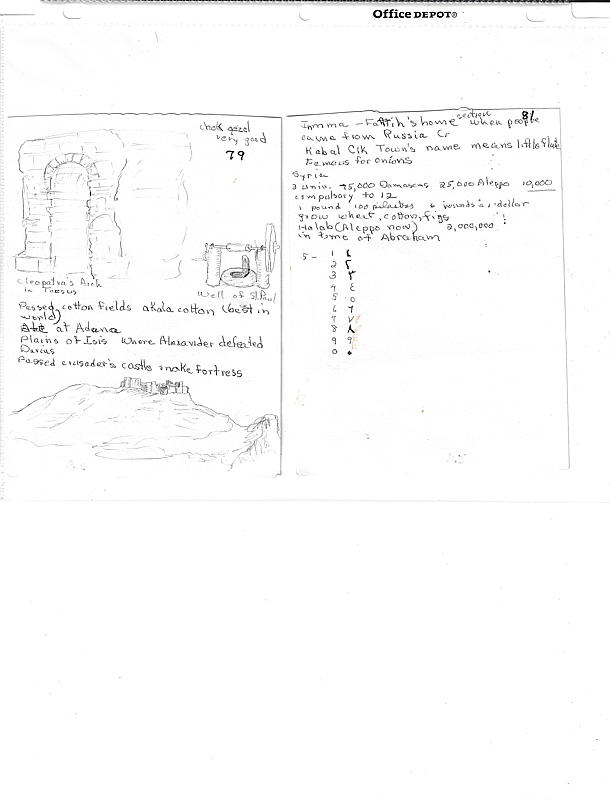 Office DEPOT®
chok gezel
very good
79
Cleopatra's Arch
in Tarsus
Well of St. Paul
Passed cotton fields akala cotton (best in
world)
at Adana
Plains of Isis where Alexander defeated
Darius
Passed crusader's castle snake fortress
81
section
Imma - Fattih's home when people
came from Russia Cr
Kabal Cik Town's name means little
Femous for onions
Syria
3 univ. 75,000 Damascus 25,000 Aleppo 10,000
compulsory to 12
1 pound 100 piastres 4 pounds = 1 dollar
grow wheat, cotton, figs
Halab (Aleppo now) 2,000,000
in time of Abraham
5 - 1 ١
2 ٢
3 ٣
4 ٤
5 ٥
6 ٦
7 ٧
8 ٨
9 ٩
0 ٠